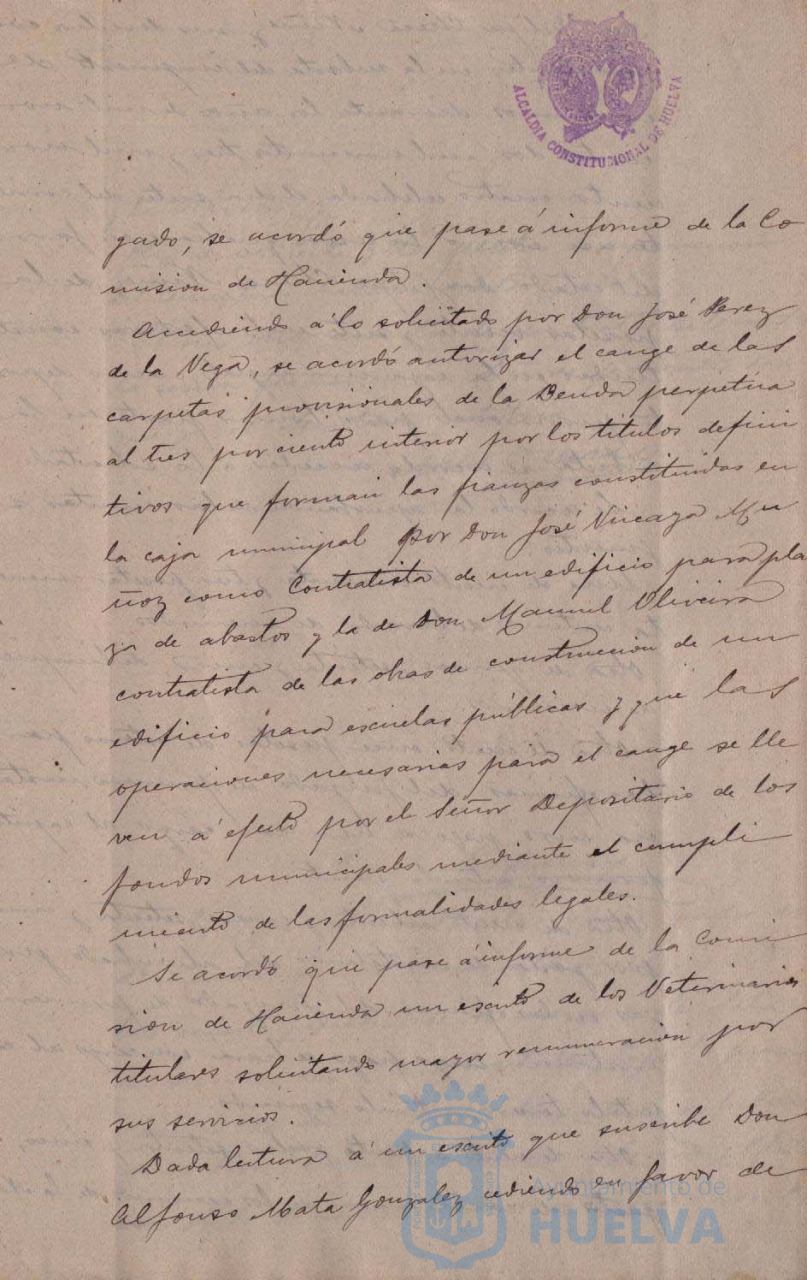 ALCALDIA CONSTITUCIONAL DE HUELVA
gado, se acordó que pase á informe de la Co
mision de Hacienda.
Accediendo á lo solicitado por Don José Perez
de la Vega, se acordó autorizar el cange de las
carpetas provisionales de la Deuda perpetua
al tres por ciento interior por los titulos defini
tivos que forman las fianzas constituidas en
la caja municipal por Don José Vizcaya Mu
ñoz como Contratista de un edificio para pla
za de abastos y la de Don Manuel Oliveira
contratista de las obras de construccion de un
edificio para escuelas públicas y que las
operaciones necesarias para el cange se lle
ven á efecto por el Señor Depositario de los
fondos municipales mediante el cumpli
miento de las formalidades legales.
Se acordó que pase á informe de la Comi
sion de Hacienda un escrito de los Veterinarios
titulares solicitando mayor remuneracion por
sus servicios.
Dada lectura á un escrito que suscribe Don
Alfonso Mata Gonzalez cediendo en favor de
Ayuntamiento de
HUELVA